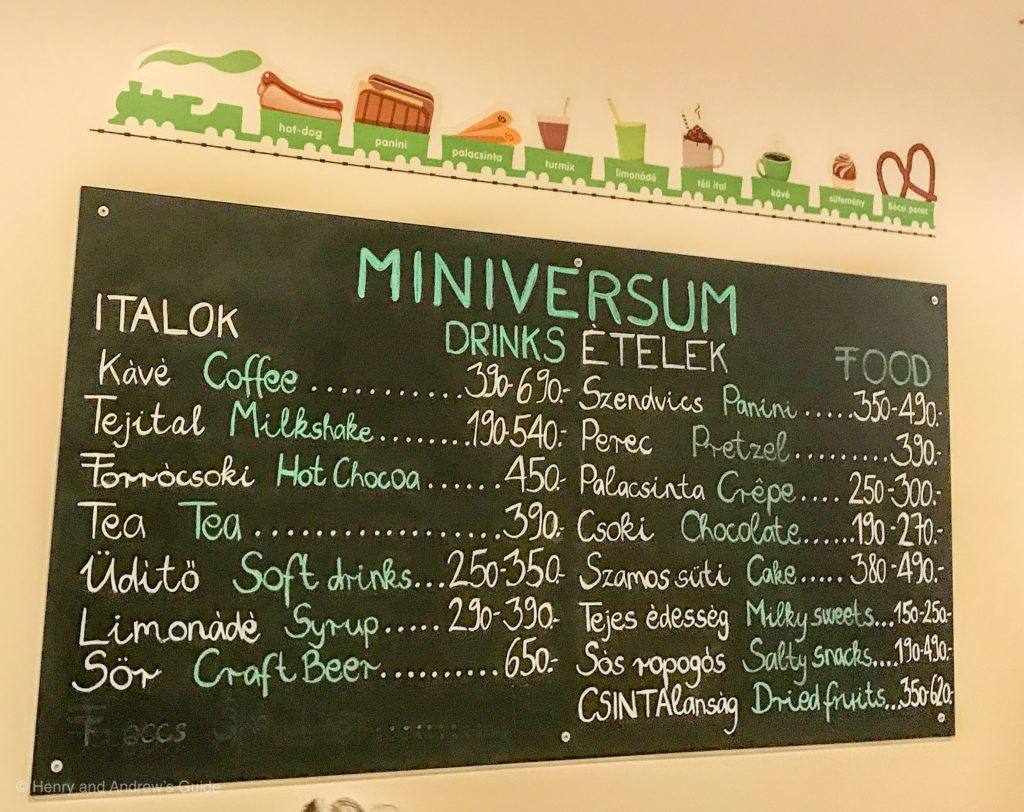 hot-dog
panini
palacsinta
turmix
limonádé
téli ital
kávé
sütemény
Bécsi perec
MINIVERSUM
ITALOK DRINKS
Kàvè Coffee .......... 390-690.-
Tejital Milkshake........ 190-540.-
Forròcsoki Hot Chocoa ...... 450.-
Tea Tea .................. 390.-
Üditő Soft drinks... 250-350.-
Limonàdè Syrup..... 290-390.-
Sör Craft Beer.......... 650.-
ÈTELEK FOOD
Szendvics Panini ..... 350-490.-
Perec Pretzel.......... 390.-
Palacsinta Crêpe.... 250-300.-
Csoki Chocolate...... 190-270.-
Szamos süti Cake..... 380-490.-
Tejes èdessèg Milky sweets... 150-250.-
Sòs ropogòs Salty snacks.... 190-490.-
CSINTAlansàg Dried fruits... 350-620.-
© Henry and Andrew's Guide